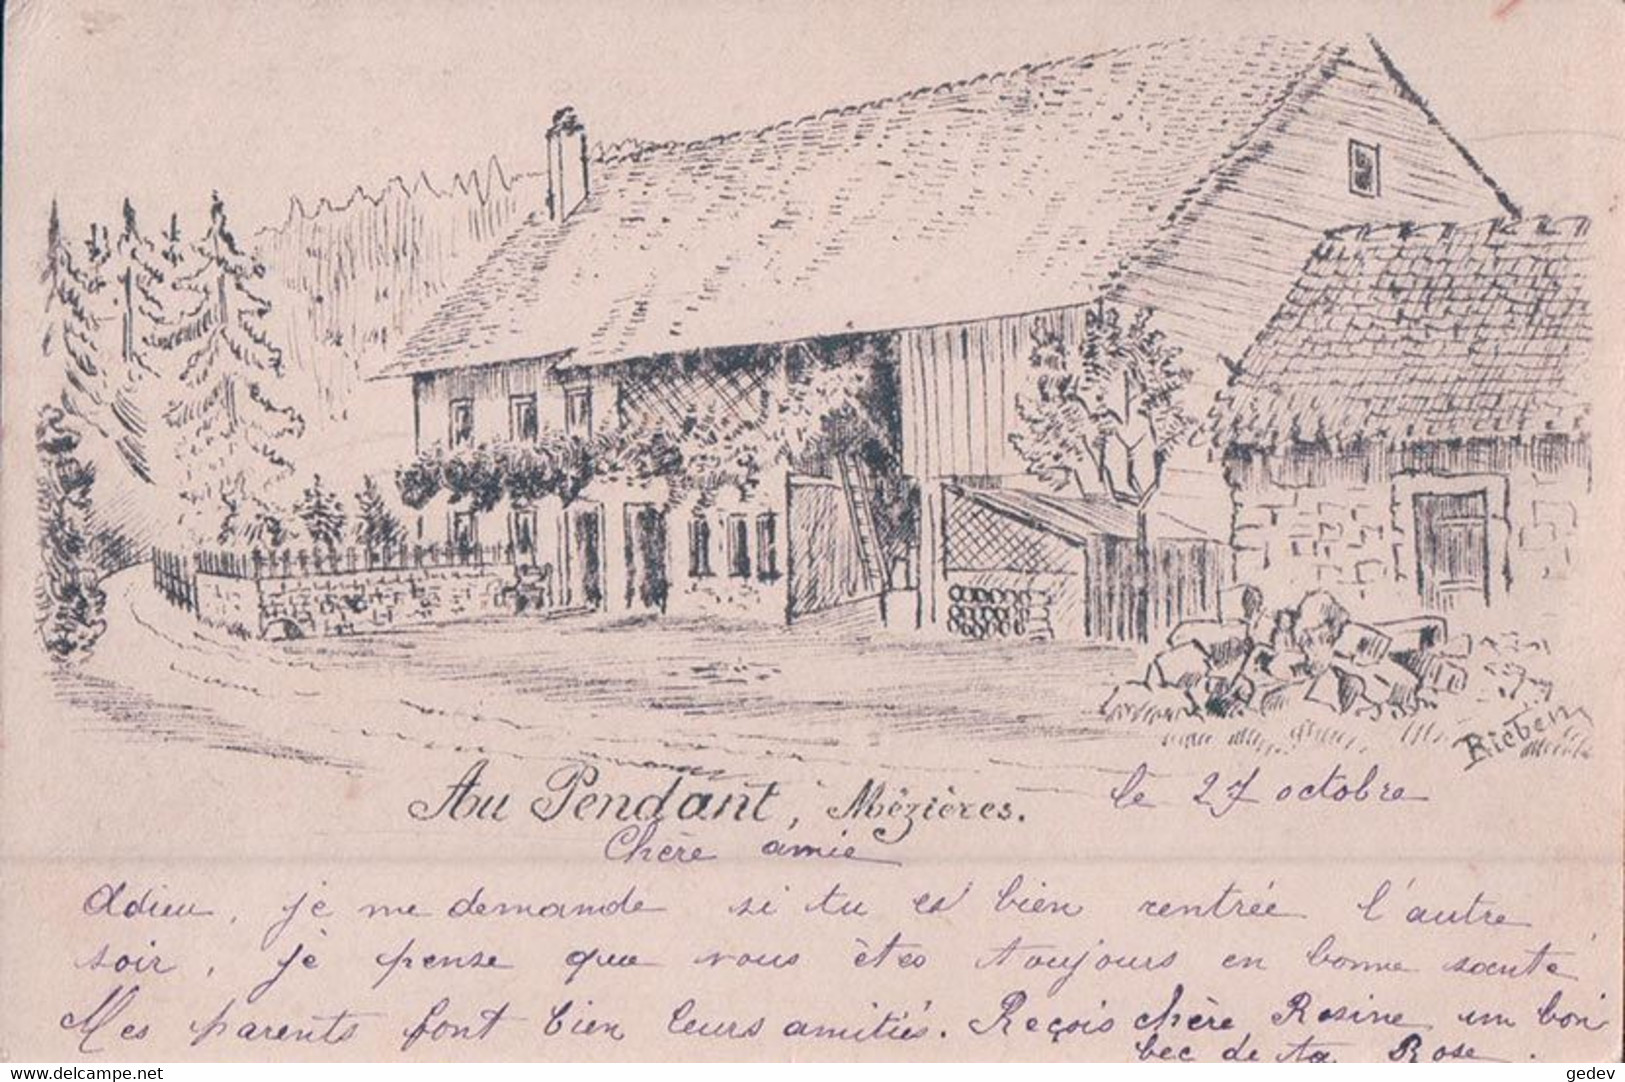 Rieben
Au Pendant, Mézières.
le 27 octobre
Chère amie
Adieu, je me demande si tu es bien rentrée l'autre
soir, je pense que vous êtes toujours en bonne santé
Mes parents font bien leurs amitiés. Reçois chère Rosine un bon
bec de ta Rose.
www.delcampe.net
gedev